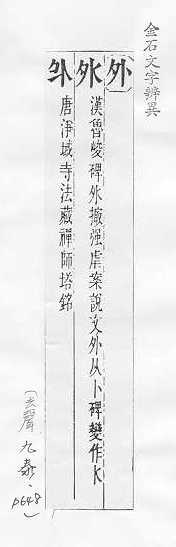 金石文字辨異
外
外 漢魯峻碑外撥強虐案說文外从卜碑變作不
外 唐淨域寺法藏禪師塔銘
(去聲九泰、p648)